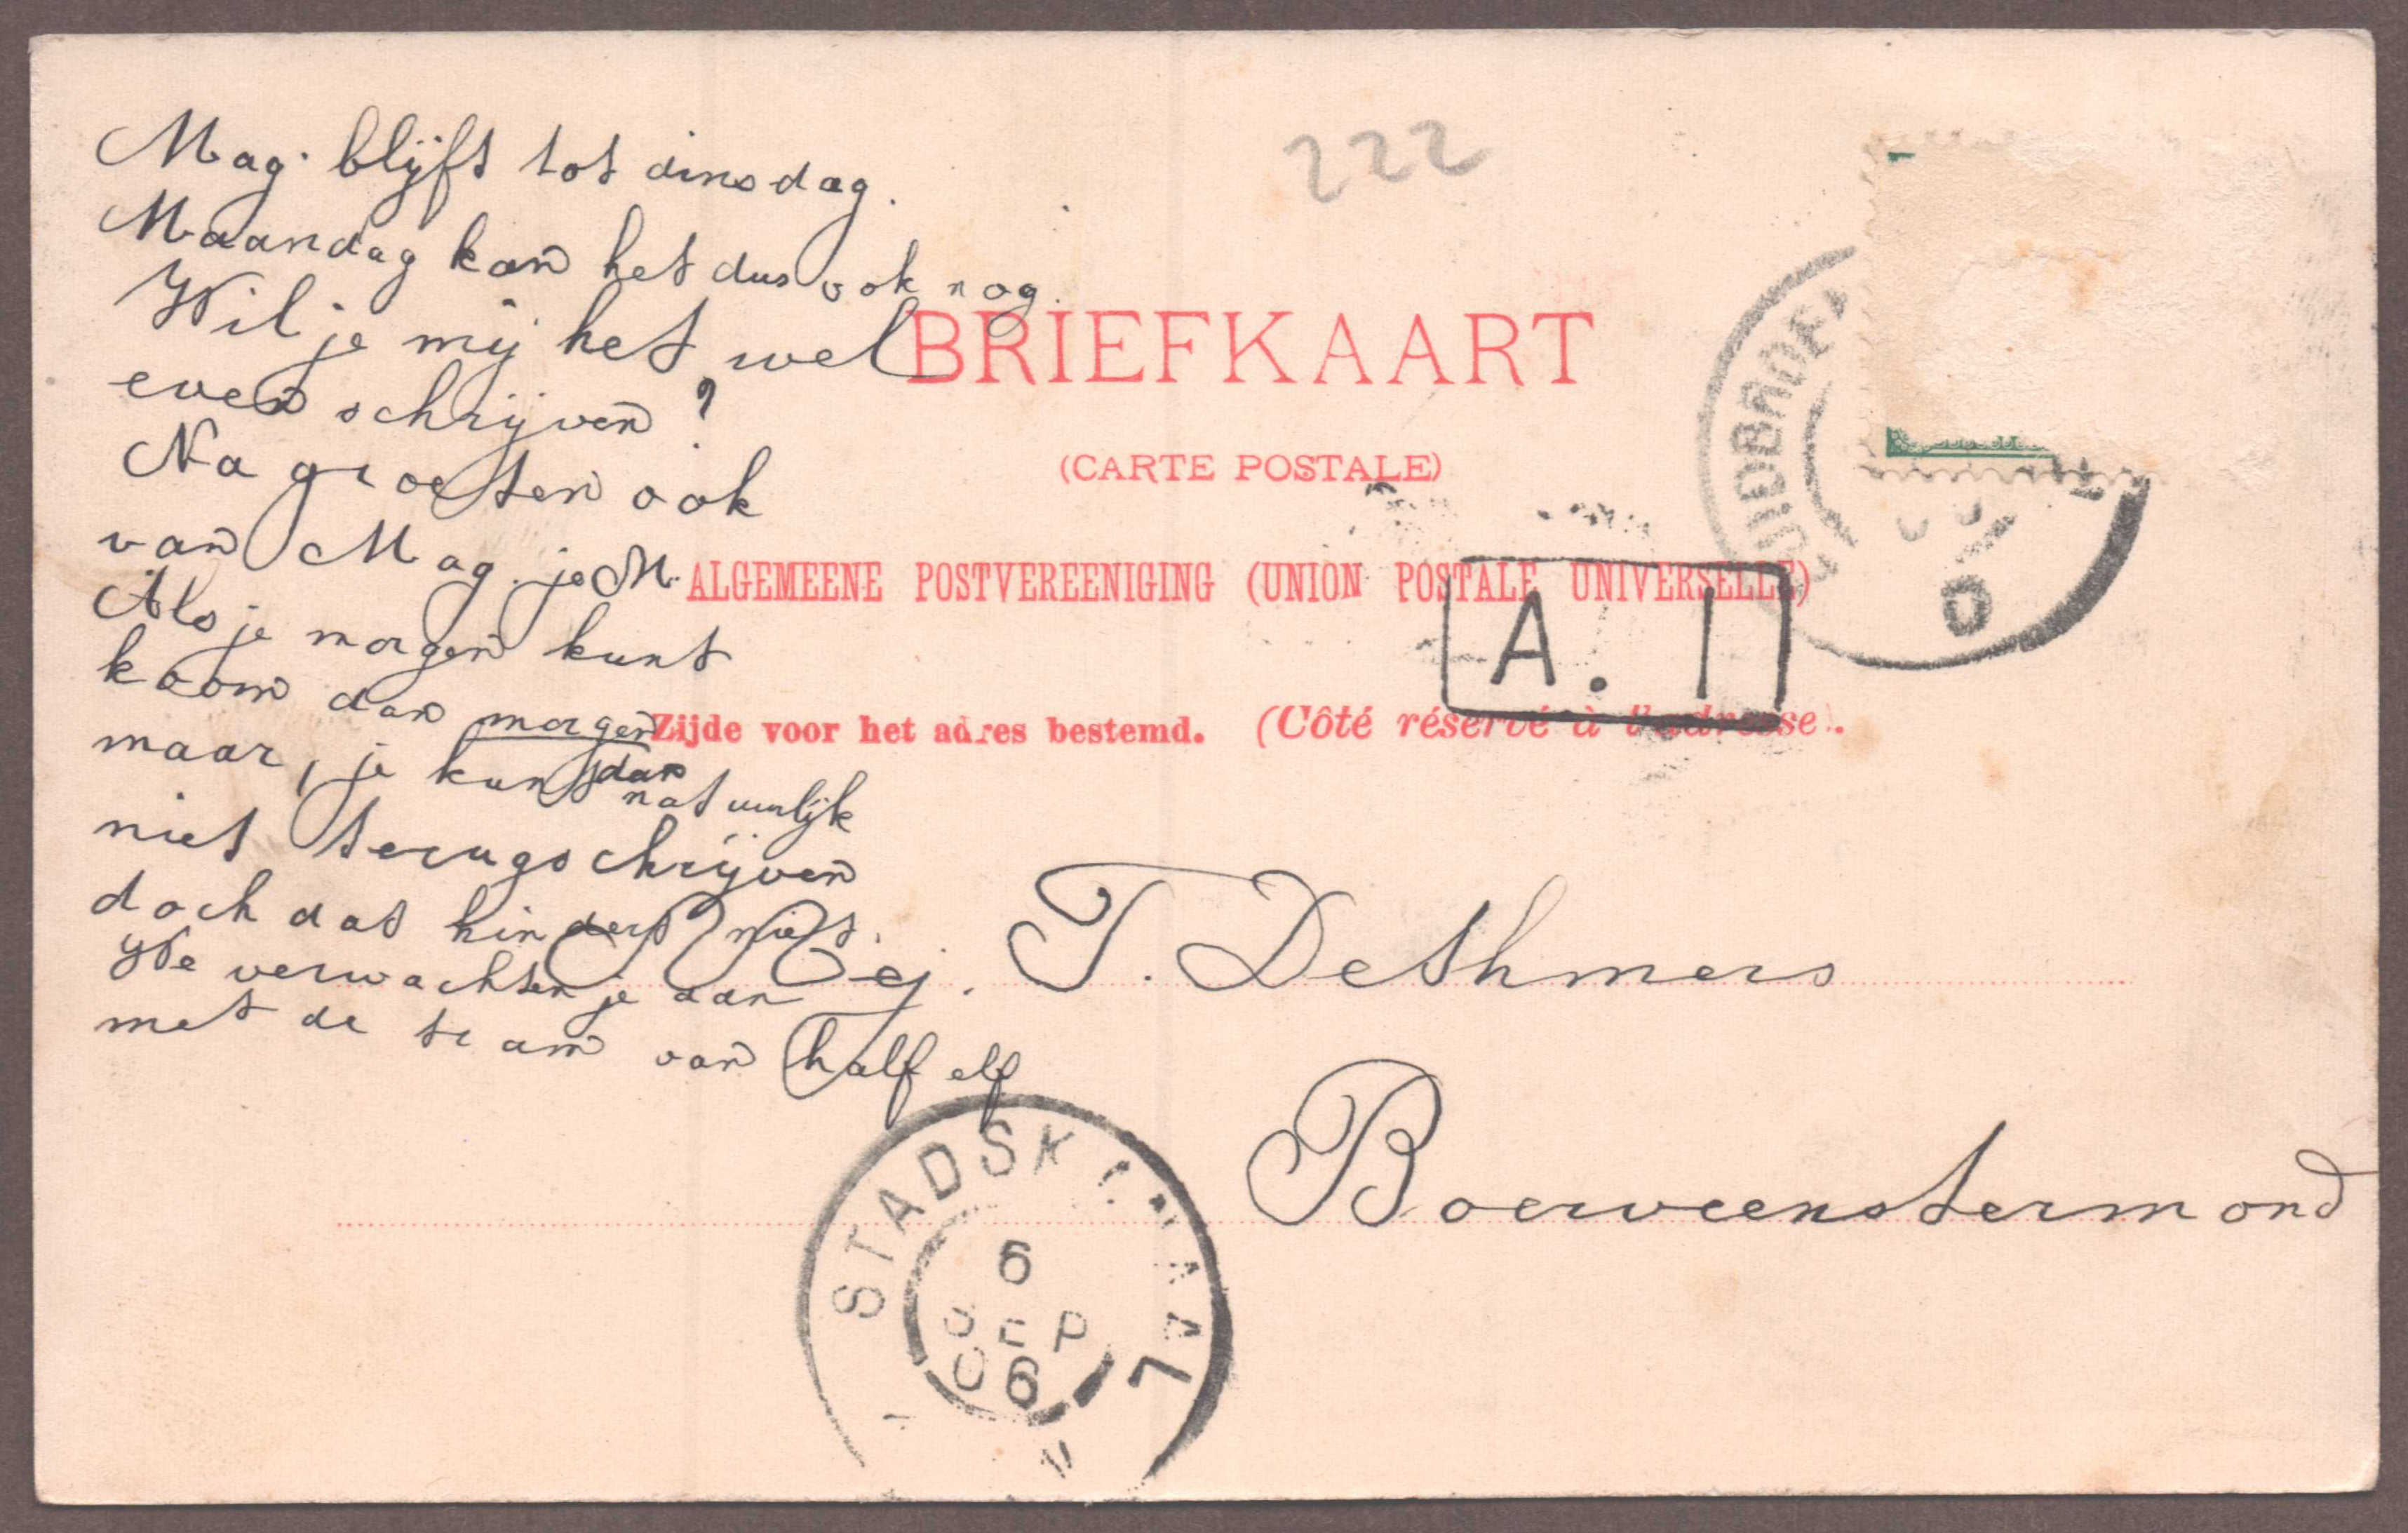 222
Mag. blijft tot dinsdag.
Maandag kan het dus ook nog.
Wil je mij het wel
even schrijven?
Na groeten ook
van Mag. je M.
Als je morgen kunt
koom dan morgen
maar, je kunt dan natuurlijk
niet terugschrijven
doch dat hindert niet.
We verwachten je dan
met de tram van half elf
BRIEFKAART
(CARTE POSTALE)
ALGEMEENE POSTVEREENIGING (UNION POSTALE UNIVERSELLE)
Zijde voor het adres bestemd. (Côté réservé à l'adresse).
A. I
ZUIDBROEK
Mej. T. Dethmers
Boerveenstermond
STADSKANAAL
6
SEP
06